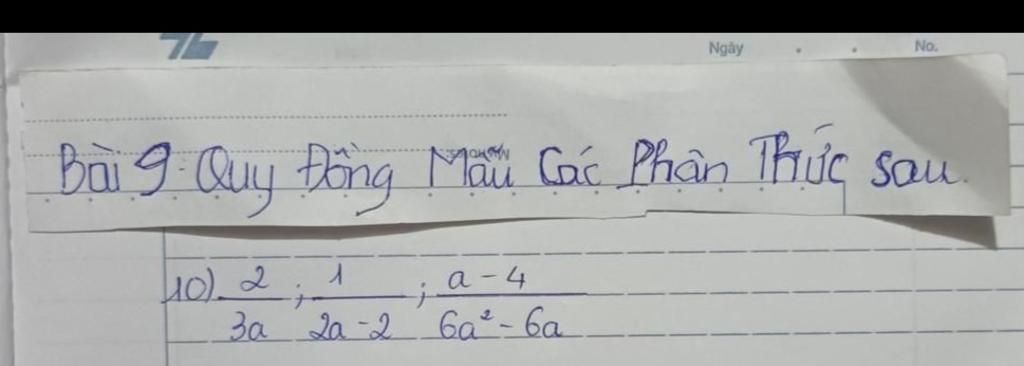 Ngày . . No.
Bài 9: Quy Đồng Mẫu Các Phân Thức sau.
10) 2/3a ; 1/2a-2 ; a-4/6a²-6a